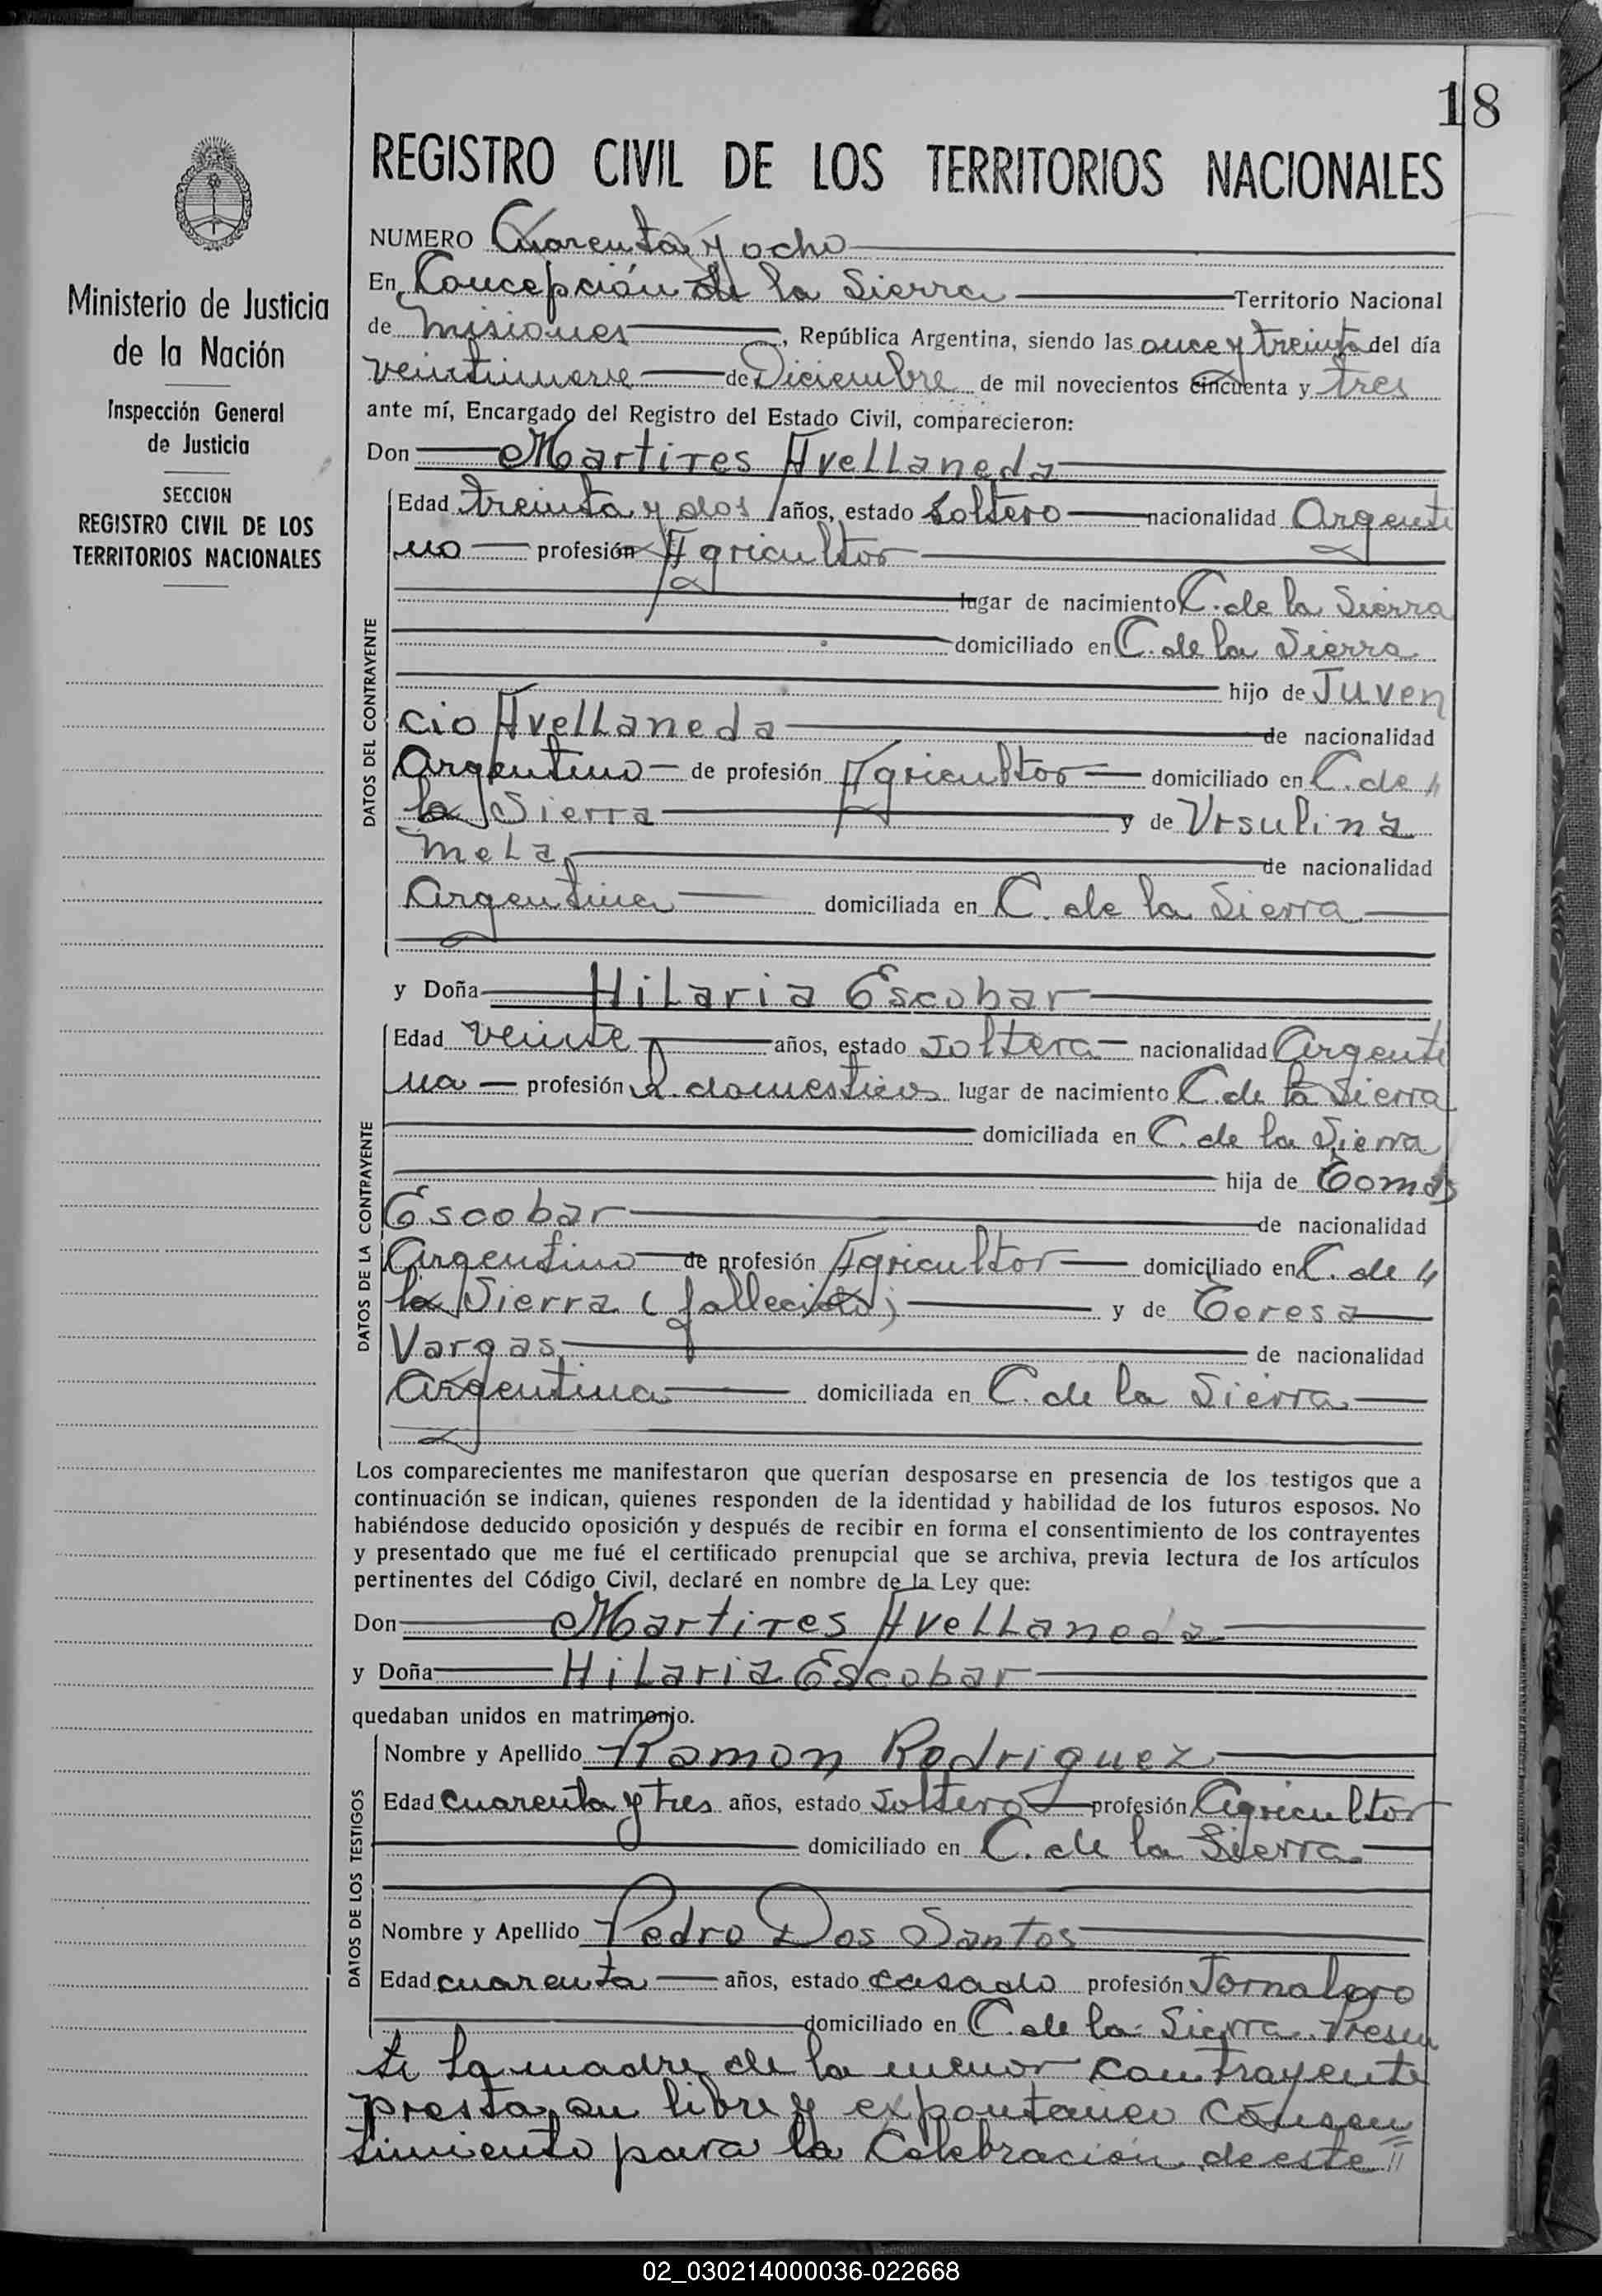 18
REGISTRO CIVIL DE LOS TERRITORIOS NACIONALES
Ministerio de Justicia
de la Nación
Inspección General
de Justicia
SECCION
REGISTRO CIVIL DE LOS
TERRITORIOS NACIONALES
NUMERO Cuarenta y ocho
En Concepción de la Sierra Territorio Nacional
de Misiones, República Argentina, siendo las once y treinta del día
veintinueve de Diciembre de mil novecientos cincuenta y tres
ante mí, Encargado del Registro del Estado Civil, comparecieron:
Don Martires Avellaneda
DATOS DEL CONTRAYENTE
Edad treinta y dos años, estado soltero nacionalidad Argenti
no profesión Agricultor
lugar de nacimiento C. de la Sierra
domiciliado en C. de la Sierra
hijo de Juven
cio Avellaneda de nacionalidad
Argentino de profesión Agricultor domiciliado en C. de //
la Sierra y de Ursulina
Mela de nacionalidad
Argentina domiciliada en C. de la Sierra
y Doña Hilaria Escobar
DATOS DE LA CONTRAYENTE
Edad veinte años, estado soltera nacionalidad Argenti
na profesión Q. domesticos lugar de nacimiento C. de la Sierra
domiciliada en C. de la Sierra
hija de Tomas
Escobar de nacionalidad
Argentino de profesión Agricultor domiciliado en C. de //
la Sierra (fallecido) y de Teresa
Vargas de nacionalidad
Argentina domiciliada en C. de la Sierra
Los comparecientes me manifestaron que querían desposarse en presencia de los testigos que a
continuación se indican, quienes responden de la identidad y habilidad de los futuros esposos. No
habiéndose deducido oposición y después de recibir en forma el consentimiento de los contrayentes
y presentado que me fué el certificado prenupcial que se archiva, previa lectura de los artículos
pertinentes del Código Civil, declaré en nombre de la Ley que:
Don Martires Avellaneda
y Doña Hilaria Escobar
quedaban unidos en matrimonio.
DATOS DE LOS TESTIGOS
Nombre y Apellido Ramon Rodriguez
Edad cuarenta y tres años, estado soltero profesión Agricultor
domiciliado en C. de la Sierra
Nombre y Apellido Pedro Dos Santos
Edad cuarenta años, estado casado profesión Jornalero
domiciliado en C. de la Sierra. Presen
te la madre de la menor contrayente
presta su libre y expontaneo consen
timiento para la Celebración de este //
02_030214000036-022668